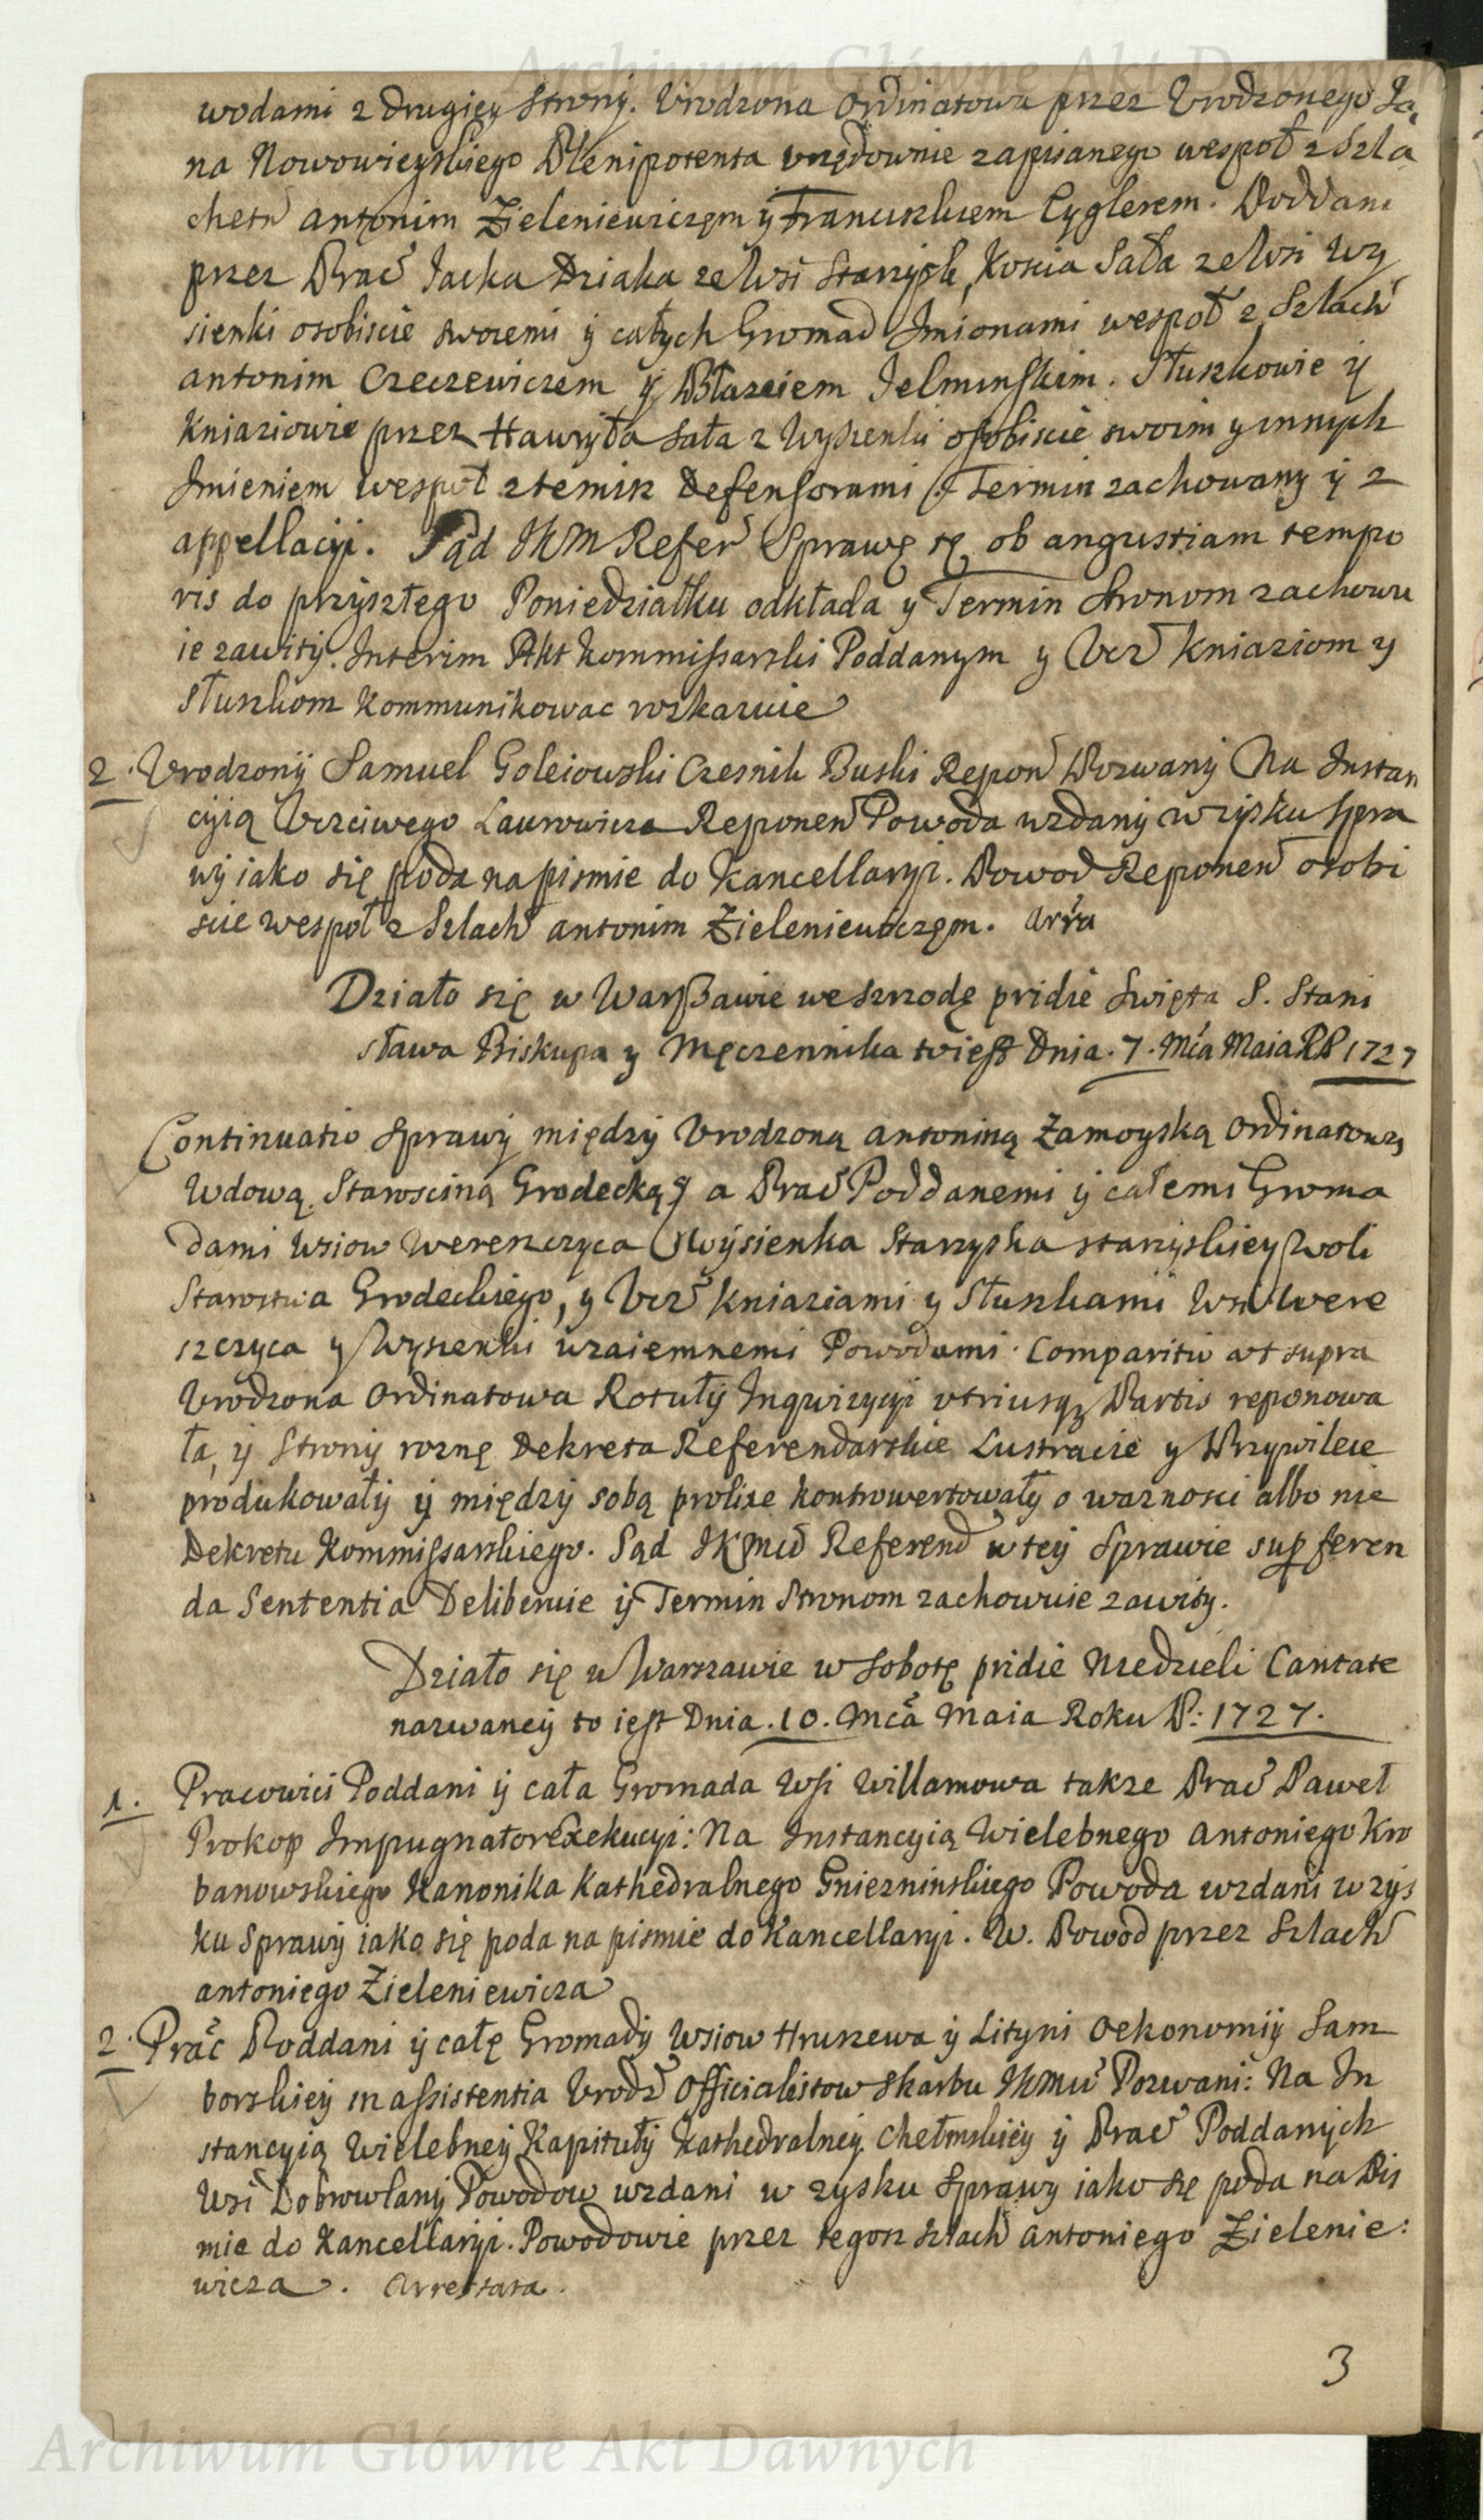 Archiwum Główne Akt Dawnych
wodami z drugiey Strony. Vrodzona Ordinatowa przez Vrodzonego Ja
na Nowowieyskiego Plenipotenta vrzędownie zapisanego wespoł z Szla
chetn antonim Zieleniewiczęm ÿ Francuszkiem Cyglerem. Poddani
przez Prac Jacka Dziaka ze Wsi Starzysk, Kościa Sała ze Wsi Wy
sienki osobiscie swoiemi ÿ całych Gromad Jmionami wespoł z Szlach
antonim Czeczewiczem ÿ Błazeiem Jelminskim. Słuszkowie ÿ
Kniaziowie przez Hawryła Sała z Wyszenki osobiscie swoim y innych
Jmieniem wespoł z temisz Defensorami Termin zachowany ÿ z
appellacÿi. Sąd JKM Refer Sprawę tę ob angustiam tempo
ris do przyszłego Poniedziałku odkłada y Termin Stronom zachowu
ie zawitÿ. Interim Akt Kommissarski Poddanym y Vcz Kniaziom y
Słuszkom Kommunikowac rozkazuie
2. Vrodzonÿ Samuel Goleiowski Czesnik Buski Repon Pozwanÿ Na Jnstan
cÿią Vczciwego Laurowicza Reponen Powoda wzdanÿ w zÿsku Spra
wÿ iako się poda na pismie do Kancellaryi. Powod Reponen osobi
scie wespoł z Szlach antonim Zieleniewiczęm. arra
Działo się w Warszawie we Szrzodę pridie Swięta S. Stani
sława Biskupa y Męczennika to iest Dnia. 7. Mca Maia RP 1727
Continuatio Sprawÿ międzÿ Vrodzoną antoniną Zamoyską Ordinatową
Wdową, Starosciną Grodecką a Prac Poddanemi ÿ całemi Groma
dami Wsiow Wereszczyca Wÿsienka Starzyska starzÿskiey Woli
Starostwa Grodeckiego, y Vcz Kniaziami y Słuszkami Wsi Were
szczyca y Wyszenki wzaiemnemi Powodami. Comparitio ut supra
Vrodzona Ordinatowa Rotułÿ Jnqwizycyi vtriusq Partis reponowa
ła, ÿ Stronÿ roznę Dekreta Referendarskie Lustracie y Przywileie
produkowałÿ ÿ międzÿ sobą prolixe kontrowertowałÿ o waznosci albo nie
Dekretu Kommissarskiego. Sąd JKMci Referend w teÿ Sprawie sup feren
da Sententia Deliberuie ÿ Termin Stronom zachowuie zawitÿ.
Działo się w Warszawie w Sobotę pridie Niedzieli Cantate
nazwaneÿ to iest Dnia. 10. Mca Maia Roku P: 1727.
1. Pracowici Poddani ÿ cała Gromada Wsi Willamowa takze Prac Paweł
Prokop Jmpugnatores Exekucyi: Na Jnstancyią Wielebnego Antoniego Kro
banowskiego Kanonika Kathedralnego Gniezninskiego Powoda wzdani w zÿs
ku Sprawÿ iako się poda na pismie do Kancellaryi. W. Powod przez Szlach
antoniego Zieleniewicza
2. Prac Poddani ÿ całę Gromadÿ Wsiow Hruszewa ÿ Litÿni Oekonomiÿ Sam
borskieÿ in assistentia Vrodz Officialistow Skarbu JKMci Pozwani: Na Jn
stancyią Wielebneÿ Kapitułÿ Kathedralneÿ Chełmskieÿ ÿ Prac Poddanÿch
Wsi Dobrowlanÿ Powodow wzdani w zysku Sprawy iako się poda na Pis
mie do Kancellarÿi. Powodowie przez tegosz Szlach antoniego Zielenie:
wicza. Arrestata.
3
Archiwum Główne Akt Dawnych